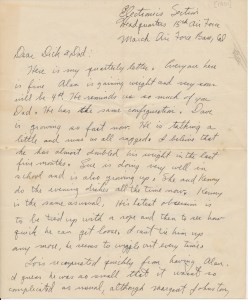 Electronics Section
Headquarters 15th Air Force
March Air Force Base, Cal
Dear Dick & Dad.
Here is my quarterly letter. Everyone here
is fine. Alan is gaining weight and very soon
will be 9#. He reminds us so much of you
Dad. He has the same configuration. Dave
is growing so fast now. He is talking a
little and runs to all I believe that
he has almost doubled his weight in the last
five months. Sue is doing very well in
school and is also growing up. She and Kenny
do the evening dishes all the time now. Kenny
is the same as usual. His latest obsession is
to be tied up with a rope and then to see how
quick he can get loose. I can't tie him up
any more, he seems to wiggle out every time
Lois recuperated quickly from having Alan.
I guess he was so small that it wasn't so
complicated as usual, although